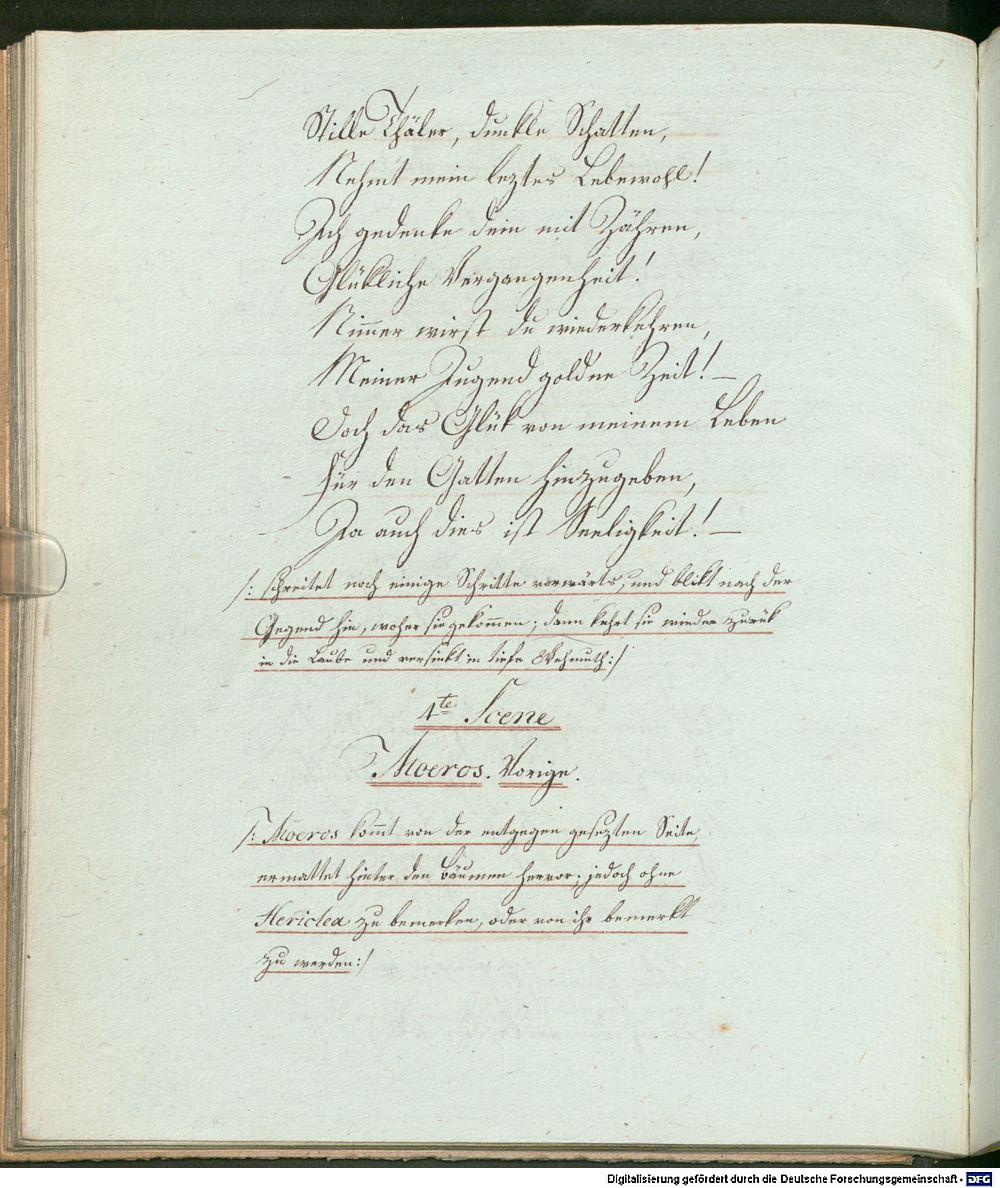 Stille Thäler, dunkle Schatten,
Nehmt mein leztes Lebewohl!
Ich gedenke dein mit Zähren,
Glükliche Vergangenheit!
Nim̅er wirst du wiederkehren,
Meiner Jugend goldne Zeit! —
Doch das Glük von meinem Leben
Für den Gatten hinzugeben,
Ja auch dies ist Seeligkeit! —
/: schreitet noch einige Schritte vorwärts, und blikt nach der
Gegend hin, woher sie gekom̅en; dann kehrt sie wieder zurük
in die Laube und versinkt in tiefe Wehmuth :/
4te Scene
Moeros. Vorige.
/: Moeros kom̅t von der entgegen gesezten Seite,
ermattet hinter den Bäumen hervor; jedoch ohne
Hericlea zu bemerken, oder von ihr bemerkt
zu werden :/
Digitalisierung gefördert durch die Deutsche Forschungsgemeinschaft - DFG